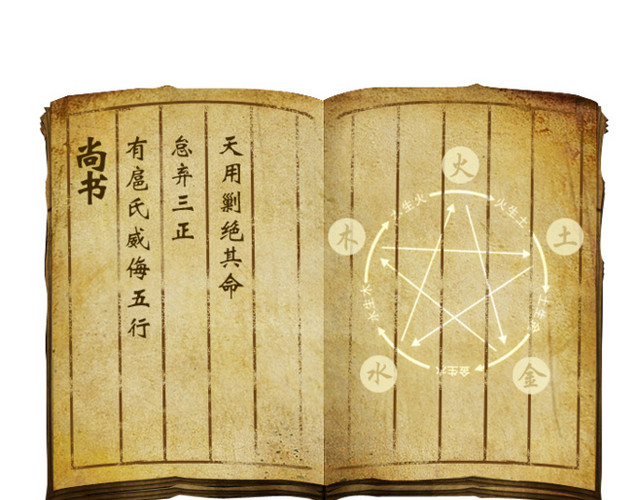 尚书
有扈氏威侮五行
怠弃三正
天用剿绝其命
火
土
金
水
木
火生土
土生金
金生水
水生木
木生火